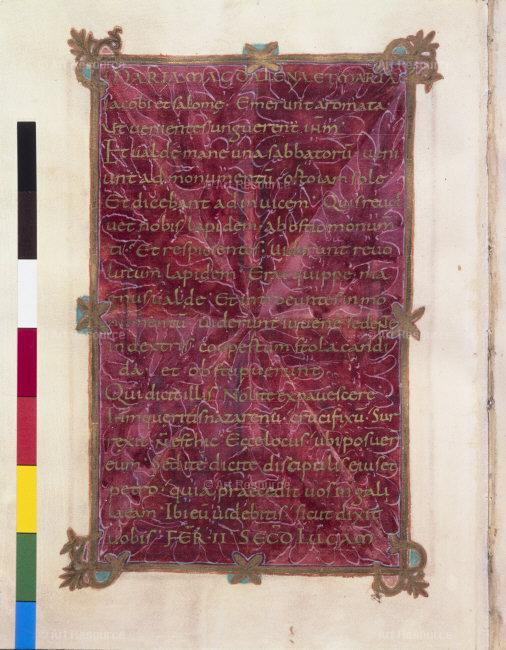 MARIA MAGDALENA. ET MARIA
Iacobi et salome. Emerunt aromata
Ut uenientes unguerent ihm
Et ualde mane una sabbatorū. ueni
unt ad monumentū. Orto iam sole
Et dicebant ad inuicem. Quis reuol
uet nobis lapidem ab ostio monum
ti. Et respicientes. Uiderunt reuo
lutum lapidem. Erat quippe ma
gnus ualde. Et introeuntes in mo
numentū. Uiderunt iuuenē seden
in dextris coopertum stola candi
da et obstipuerunt
Qui dicit illis Nolite expauescere
Ihm queritis nazarenū. crucifixū. Sur
rexit. n̄ est hic Ecce locus. ubi posuer
eum. Sed ite dicite discipulis eius et
petro. quia praecedit uos in gali
laeam Ibi eū uidebitis. sicut dixit
uobis. FER. II SECD LUCAM
© Art Resource